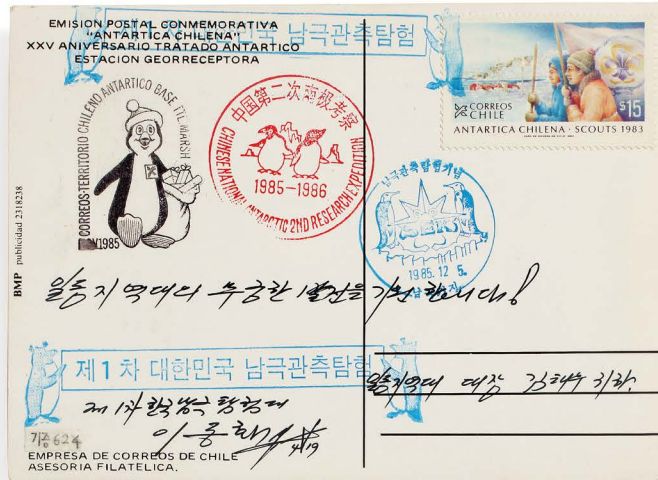 EMISION POSTAL CONMEMORATIVA
"ANTARTICA CHILENA"
XXV ANIVERSARIO TRATADO ANTARTICO
ESTACION GEORRECEPTORA
남극관측탐험
CORREOS CHILE
$15
ANTARTICA CHILENA · SCOUTS 1983
CORREOS-TERRITORIO CHILENO ANTARTICO BASE TTE. MARSH
1985
中国第二次南极考察
1985-1986
CHINESE NATIONAL ANTARCTIC 2ND RESEARCH EXPEDITION
남극관측탐험기념
1985. 12. 5.
BMP publicidad 2318238
지역대의 무궁한 발전을 기원합니다!
제1차 대한민국 남극관측탐험
지역대 대장 김 귀하.
제1차 한국남극탐험대
이
4/19
624
EMPRESA DE CORREOS DE CHILE
ASESORIA FILATELICA.